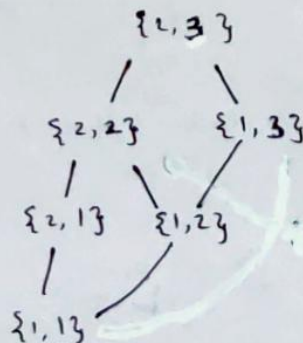 {2,3}
{2,2} {1,3}
{2,1} {1,2}
{1,1}